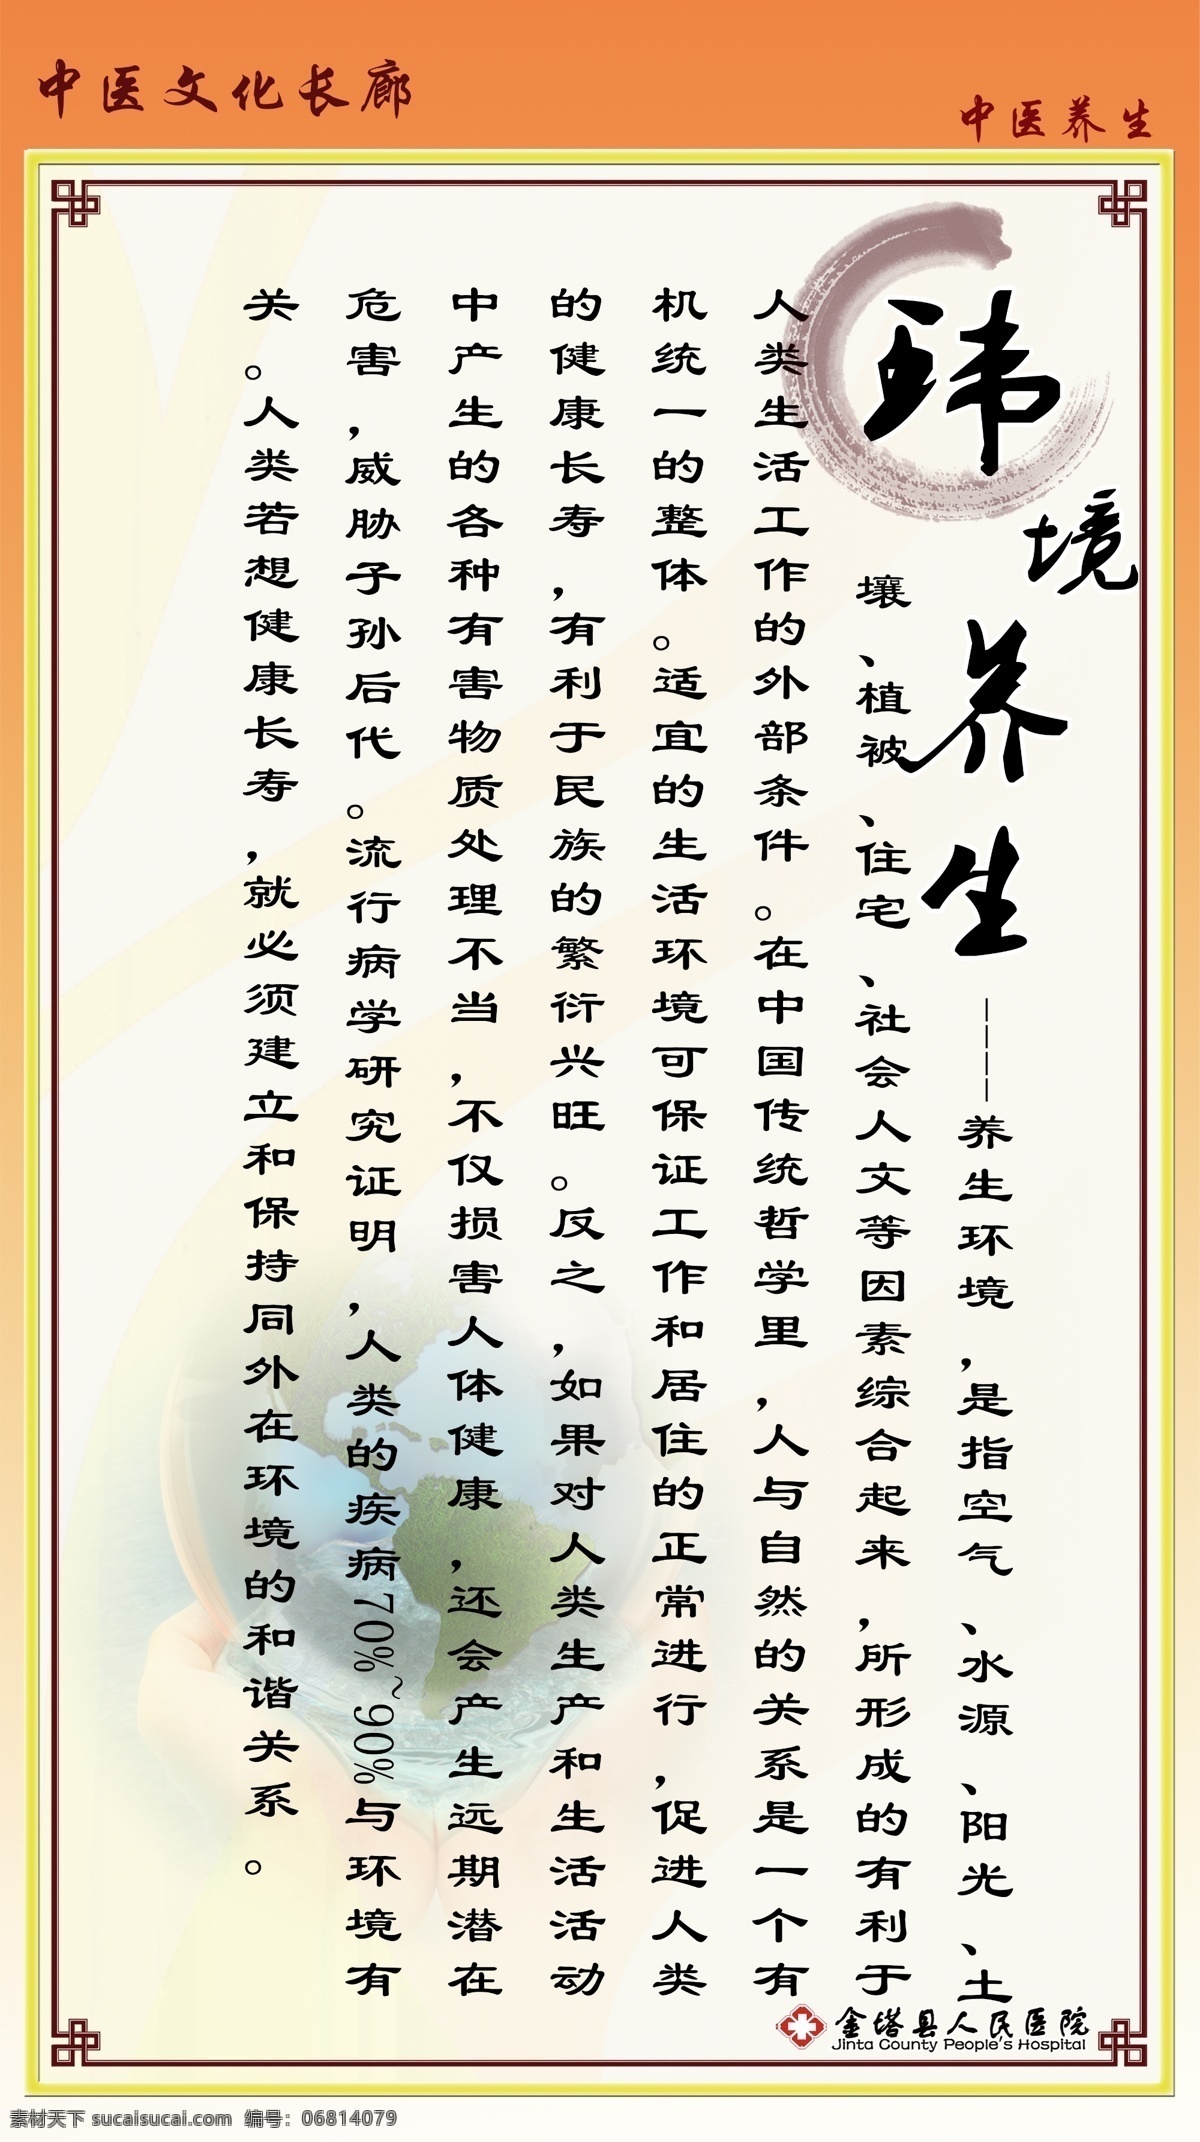 中医文化长廊
中医养生
玮境养生
----养生环境，是指空气、水源、阳光、土
壤、植被、住宅、社会人文等因素综合起来，所形成的有利于
人类生活工作的外部条件。在中国传统哲学里，人与自然的关系是一个有
机统一的整体。适宜的生活环境可保证工作和居住的正常进行，促进人类
的健康长寿，有利于民族的繁衍兴旺。反之，如果对人类生产和生活活动
中产生的各种有害物质处理不当，不仅损害人体健康，还会产生远期潜在
危害，威胁子孙后代。流行病学研究证明，人类的疾病70%~90%与环境有
关。人类若想健康长寿，就必须建立和保持同外在环境的和谐关系。
金塔县人民医院
Jinta County People's Hospital
素材天下 sucaisucai.com 编号：06814079